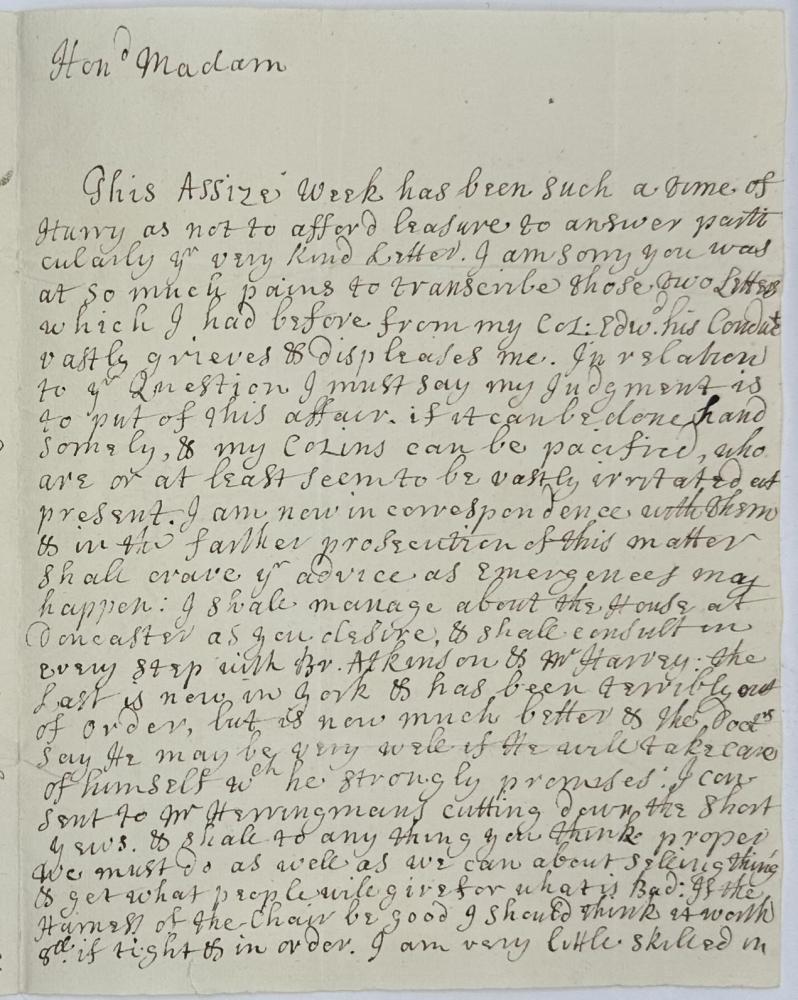 Hond Madam
This Assize Week has been such a time of
Hurry as not to afford leasure to answer parti
cularly yr very kind Letter. I am sorry you was
at so much pains to transcribe those two Letters
which I had before from my Col: Edwd. his Conduct
vastly grieves & displeases me. In relation
to yr Question I must say my Judgment is
to put of this affair. if it can be done hand
somely, & my Cosins can be pacified, who
are or at least seem to be vastly irritated at
present. I am now in correspondence with them
& in the farther prosecution of this matter
shall crave yr advice as Emergences may
happen: I shall manage about the House at
Doncaster as you desire, & shall consult in
every step with Br. Atkinson & Mr Harvey: the
Last is now in York & has been terribly out
of order, but is now much better & the Doctrs
say He may be very well if He will take care
of himself wch he strongly promises: I con
sent to Mr Herringmans cutting down the short
yews. & shall to any thing you think proper
We must do as well as we can about selling things
& get what people will give for what is Bad: If the
Harness of the Chair be good I should think it worth
8ll. if tight & in order. I am very little skilled in